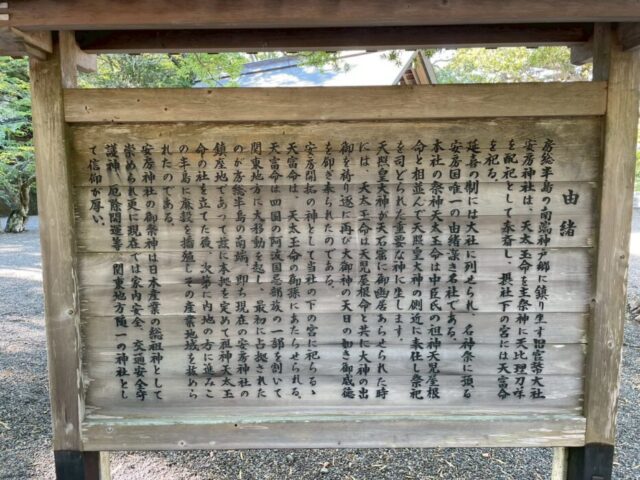 由緒
房総半島の南端神戸郷に鎮り生す旧官幣大社
安房神社は、天太玉命を主祭神に天比理刀咩命
を配祀として奉斎し、摂社下の宮には天富命
を祀る。
延喜の制には大社に列せられ、名神祭に預る
安房国唯一の由緒深き名社である。
本社の祭神天太玉命は中臣氏の祖神天児屋根
命と相並んで天照皇大神の側近に奉仕し祭祀
を司どられた重要な神に生します。
天照皇大神が天石窟に御幽居あらせられた時
には、天太玉命は天児屋根命と共に大神の出
御を祷り遂に再び大御神の天日の如き御威徳
を仰ぎ奉られたのである。
安房開拓の神として当社の下の宮に祀らるゝ
天富命は、天太玉命の御孫にあたらせられる。
天富命は四国の阿波国忌部族の一部を割いて
関東地方に大移動を起し、最初に占拠された
のが房総半島の南端、即ち現在の安房神社の
鎮座地であって茲に本拠を定めて祖神天太玉
命の社を立てた後、次第に内地の方に進みこ
の半島に麻穀を播殖しその産業地域を拡めら
れたのである。
安房神社の御祭神は日本産業の総祖神として
崇められ更に現在では家内安全、交通安全守
護神、厄除開運等、関東地方随一の神社とし
て信仰が厚い。